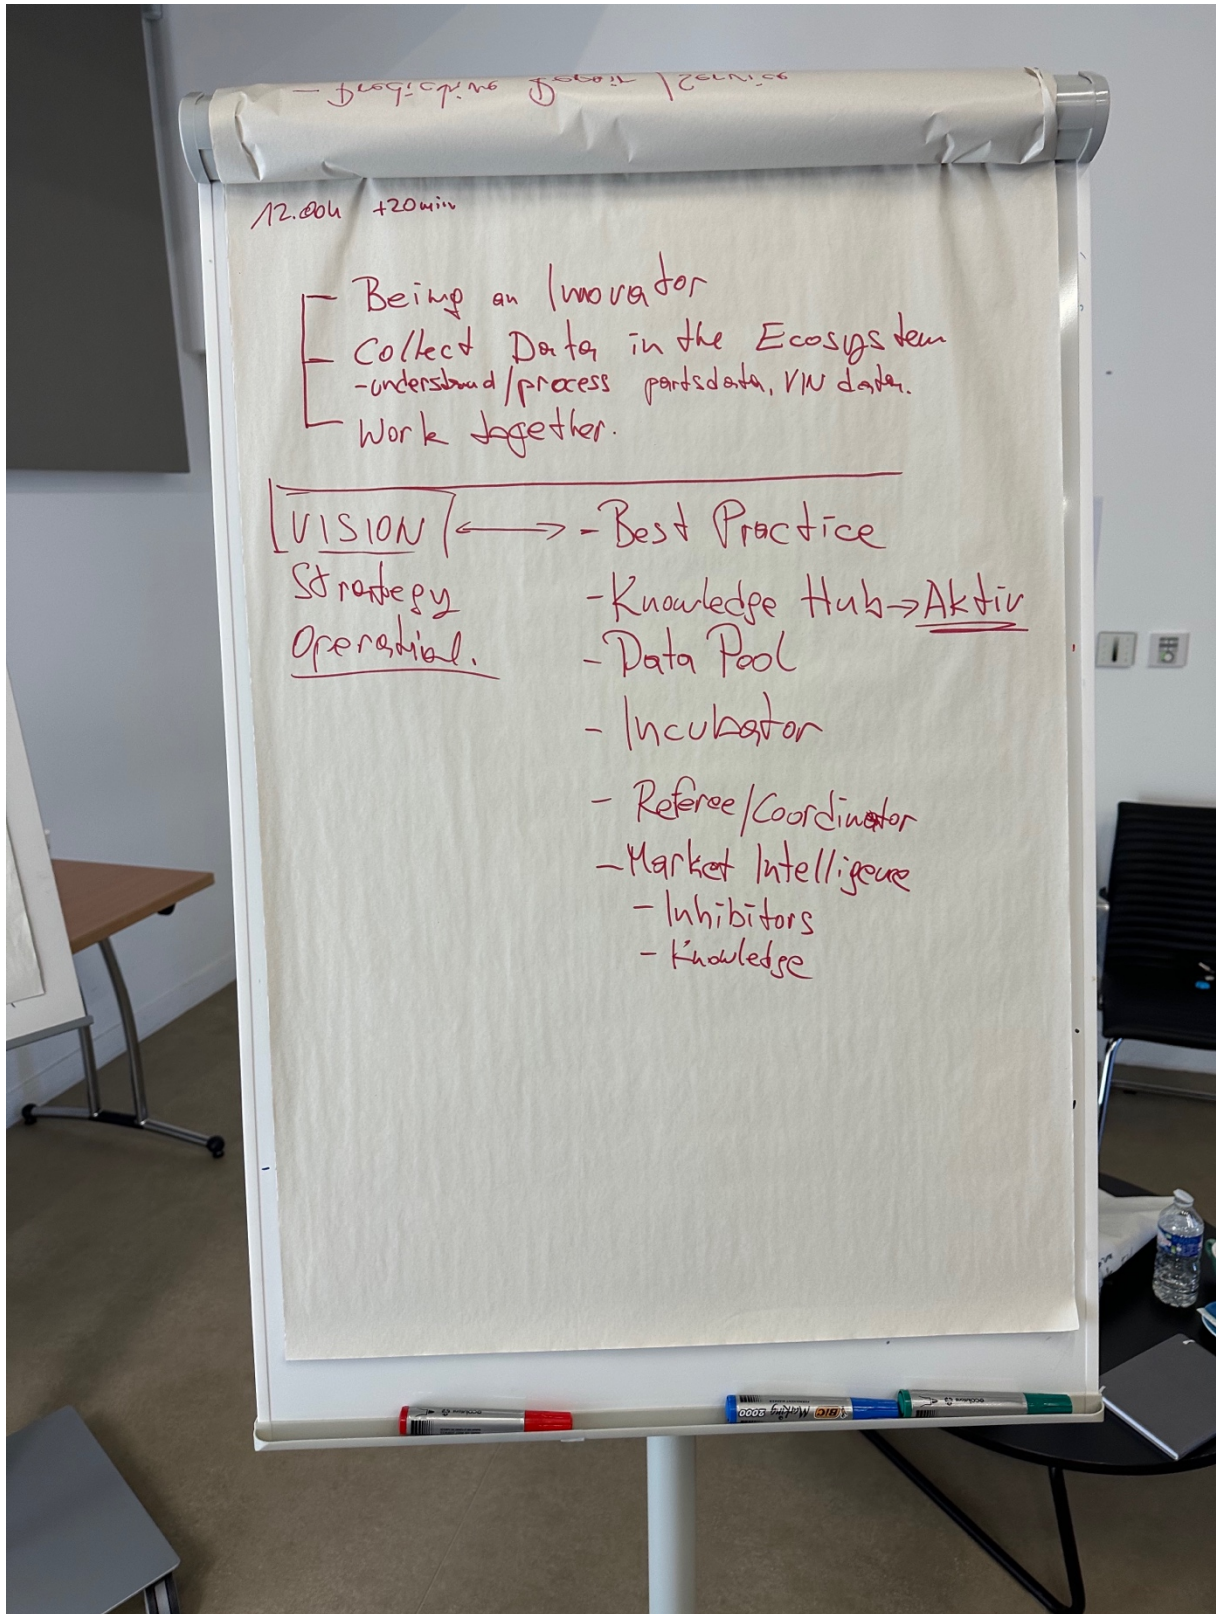 - Predictive Repair / Service
12.00h +20min
- Being an Inovator
- Collect Data in the Ecosystem
- understand/process partsdata, VIN data.
- Work together.
VISION ↔ - Best Practice
Strategy - Knowledge Hub → Aktiv
Operational. - Data Pool
- Incubator
- Referee/Coordinator
- Market Intelligence
- Inhibitors
- Knowledge
BIC Marking 2000